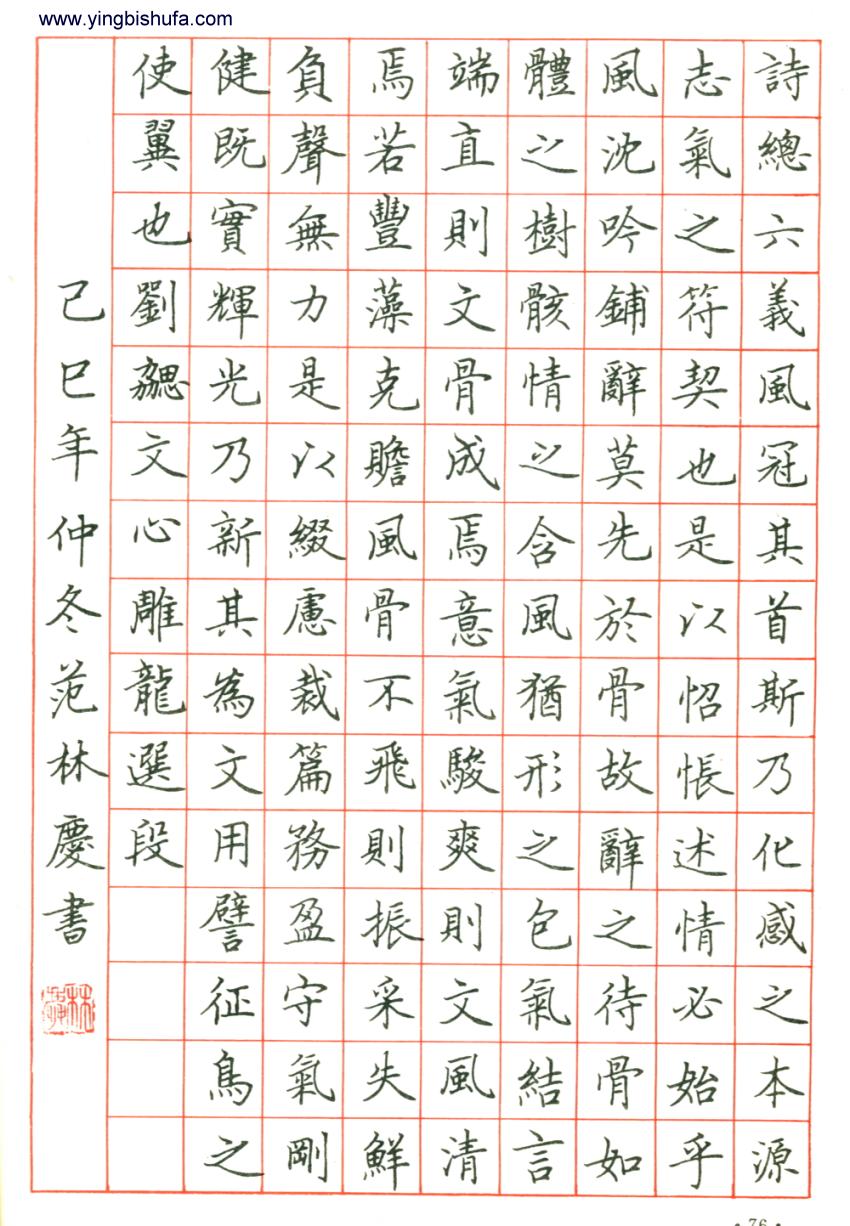 www.yingbishufa.com
詩總六義風冠其首斯乃化感之本源
志氣之符契也是以怊悵述情必始乎
風沈吟鋪辭莫先於骨故辭之待骨如
體之樹骸情之含風猶形之包氣結言
端直則文骨成焉意氣駿爽則文風清
焉若豐藻克贍風骨不飛則振采失鮮
負聲無力是以綴慮裁篇務盈守氣剛
健既實輝光乃新其為文用譬征鳥之
使翼也劉勰文心雕龍選段
己巳年仲冬范林慶書
·76·